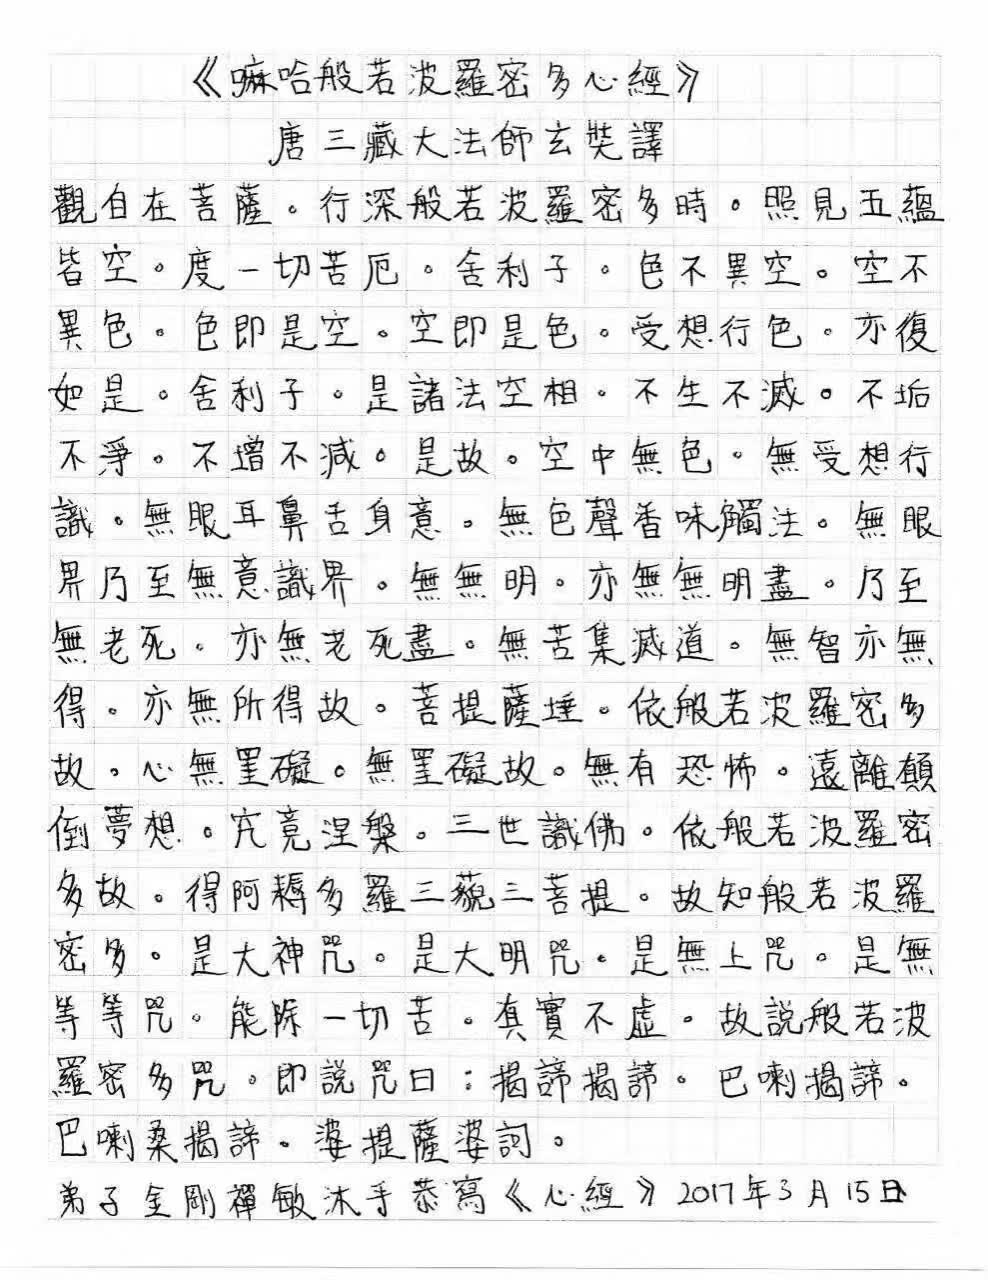 《嘛哈般若波羅密多心經》
唐三藏大法師玄奘譯
觀自在菩薩。行深般若波羅密多時。照見五蘊
皆空。度一切苦厄。舍利子。色不異空。空不
異色。色即是空。空即是色。受想行色。亦復
如是。舍利子。是諸法空相。不生不滅。不垢
不淨。不增不減。是故。空中無色。無受想行
識。無眼耳鼻舌身意。無色聲香味觸法。無眼
界乃至無意識界。無無明。亦無無明盡。乃至
無老死。亦無老死盡。無苦集滅道。無智亦無
得。亦無所得故。菩提薩埵。依般若波羅密多
故。心無罣礙。無罣礙故。無有恐怖。遠離顛
倒夢想。究竟涅槃。三世識佛。依般若波羅密
多故。得阿耨多羅三藐三菩提。故知般若波羅
密多。是大神咒。是大明咒。是無上咒。是無
等等咒。能除一切苦。真實不虛。故說般若波
羅密多咒。即說咒曰：揭諦揭諦。巴喇揭諦。
巴喇桑揭諦。婆提薩婆訶。
弟子金剛禪敏沐手恭寫《心經》2017年3月15日